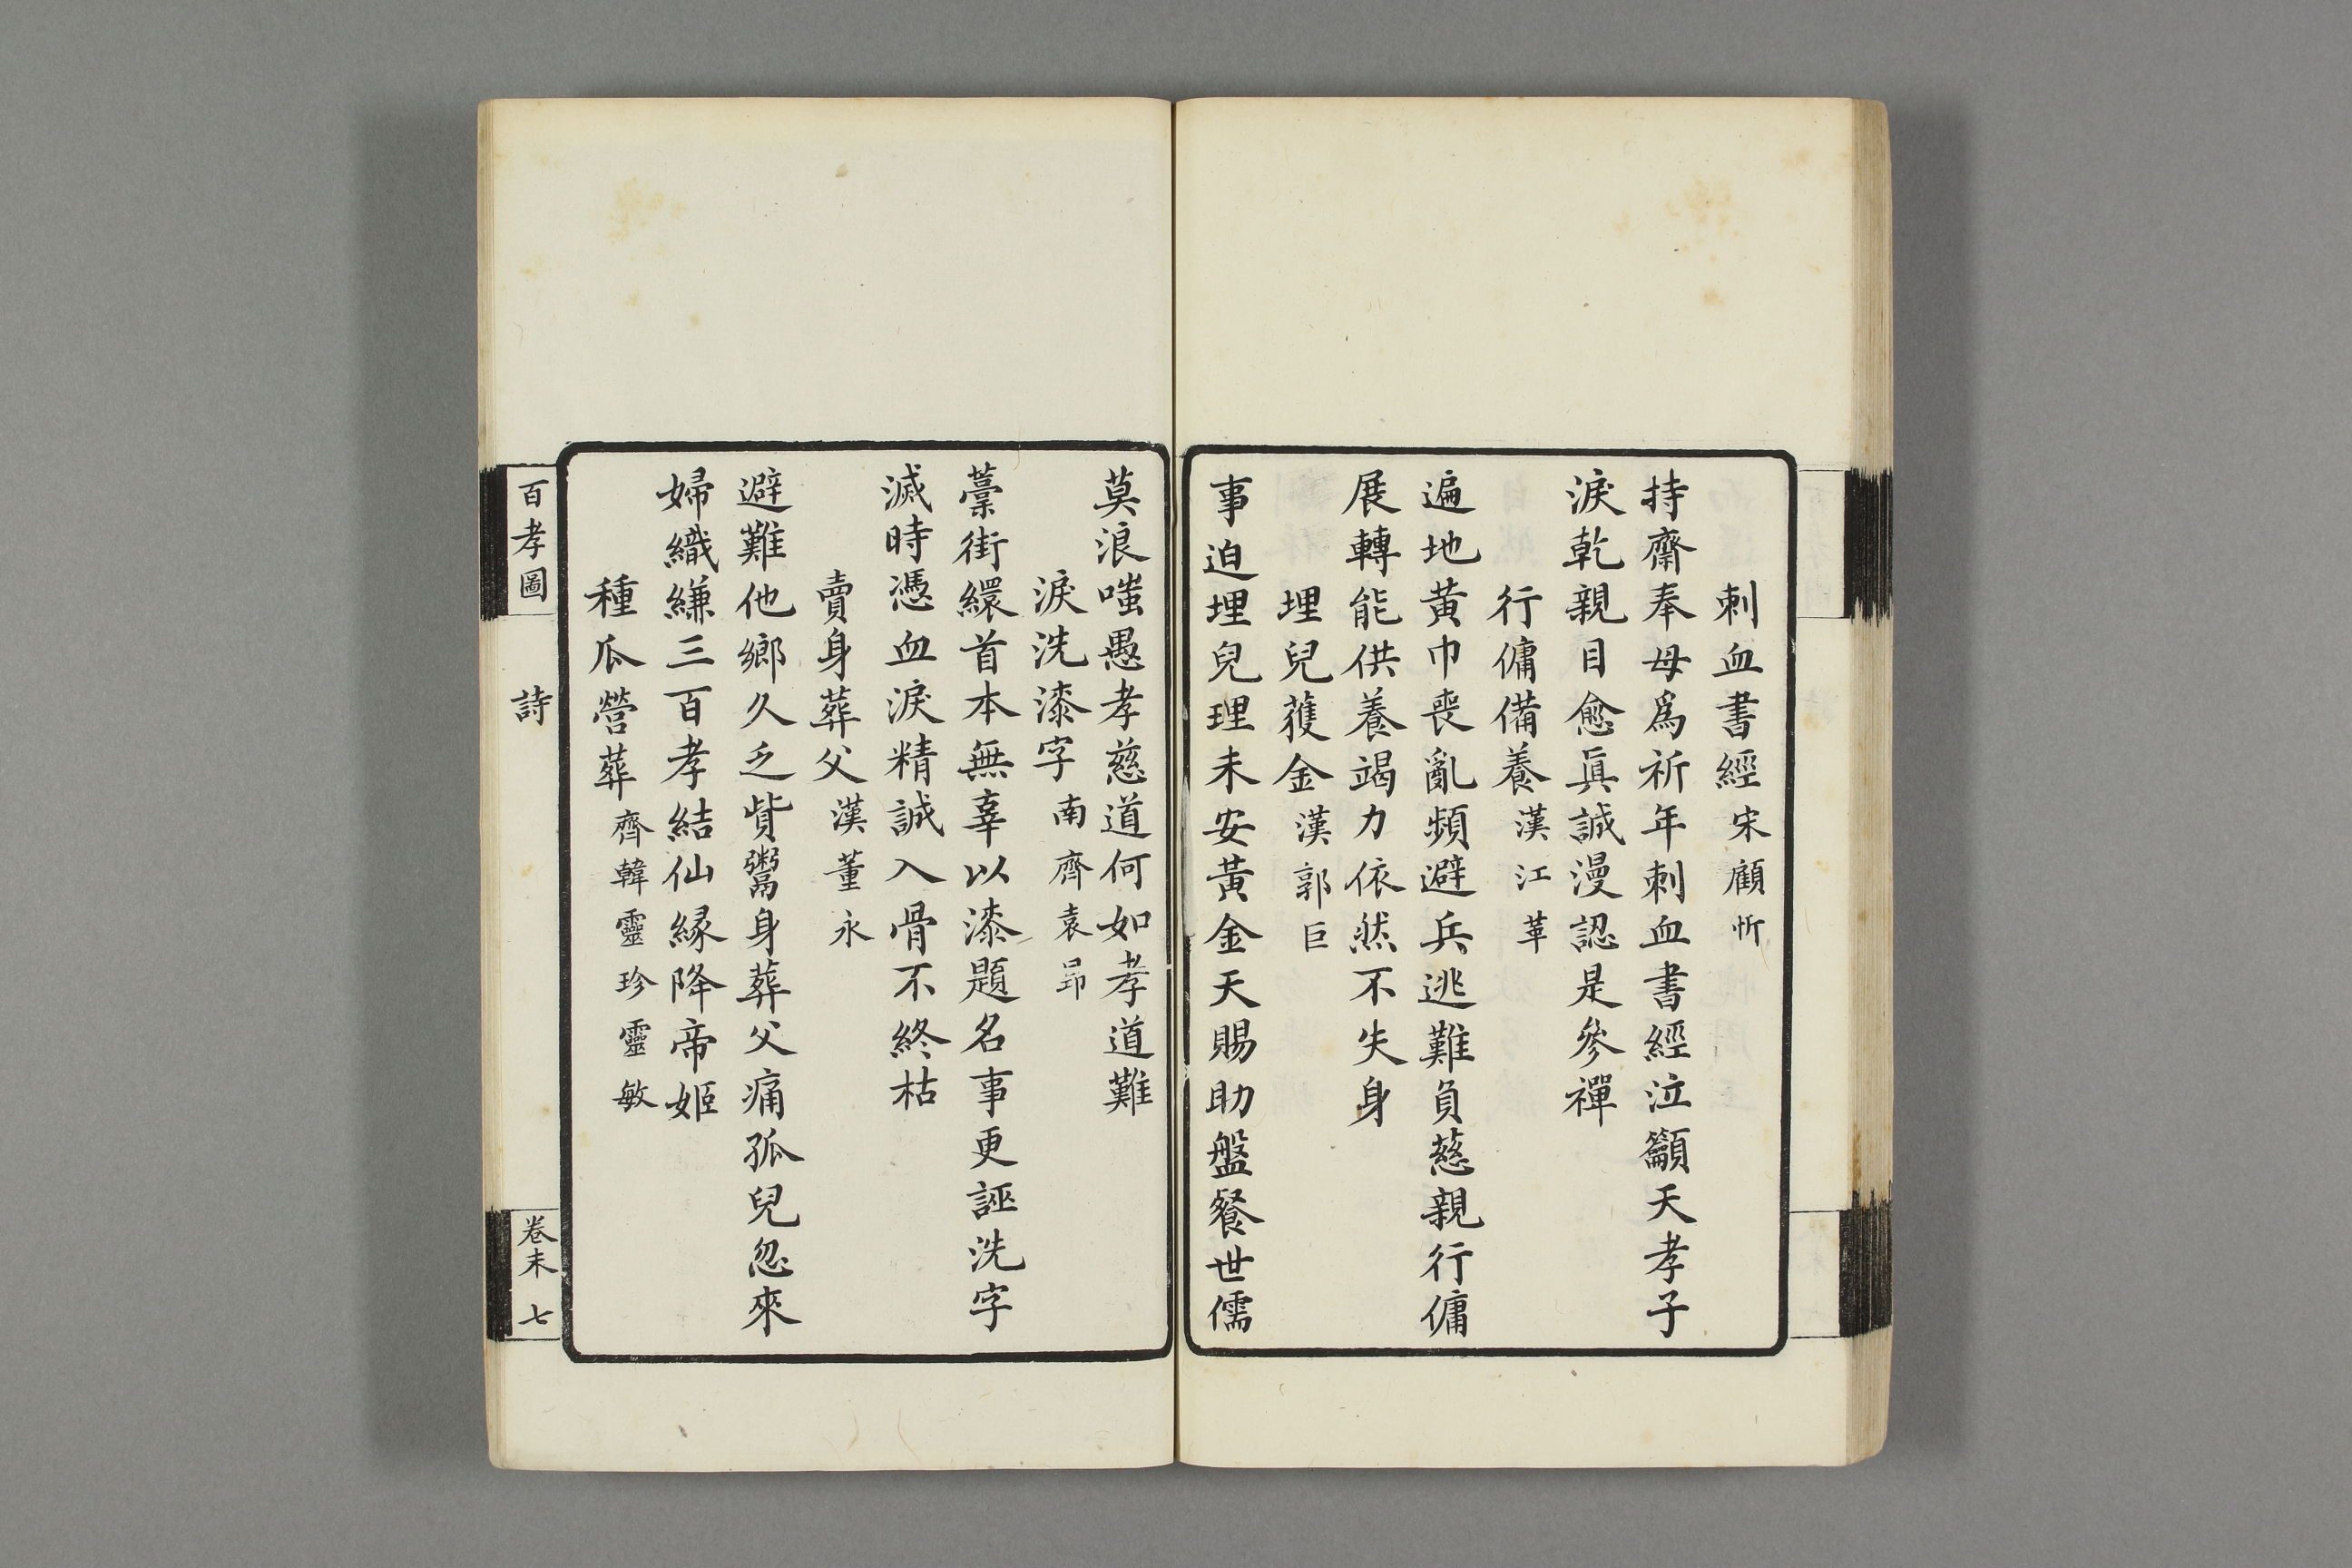 刺血書經宋顧忻
持齋奉母爲祈年刺血書經泣籲天孝子
淚乾親目愈眞誠漫認是參禪
行傭備養漢江革
遍地黃巾喪亂頻避兵逃難負慈親行傭
展轉能供養竭力依然不失身
埋兒獲金漢郭巨
事迫埋兒理未安黃金天賜助盤餐世儒
莫浪嗤愚孝慈道何如孝道難
淚洗漆字南齊袁昂
藁街繯首本無辜以漆題名事更誣洗字
滅時憑血淚精誠入骨不終枯
賣身葬父漢董永
避難他鄉久乏貲鬻身葬父痛孤兒忽來
婦織縑三百孝結仙緣降帝姬
種瓜營葬齊韓靈珍靈敏
百孝圖
詩
卷末
七